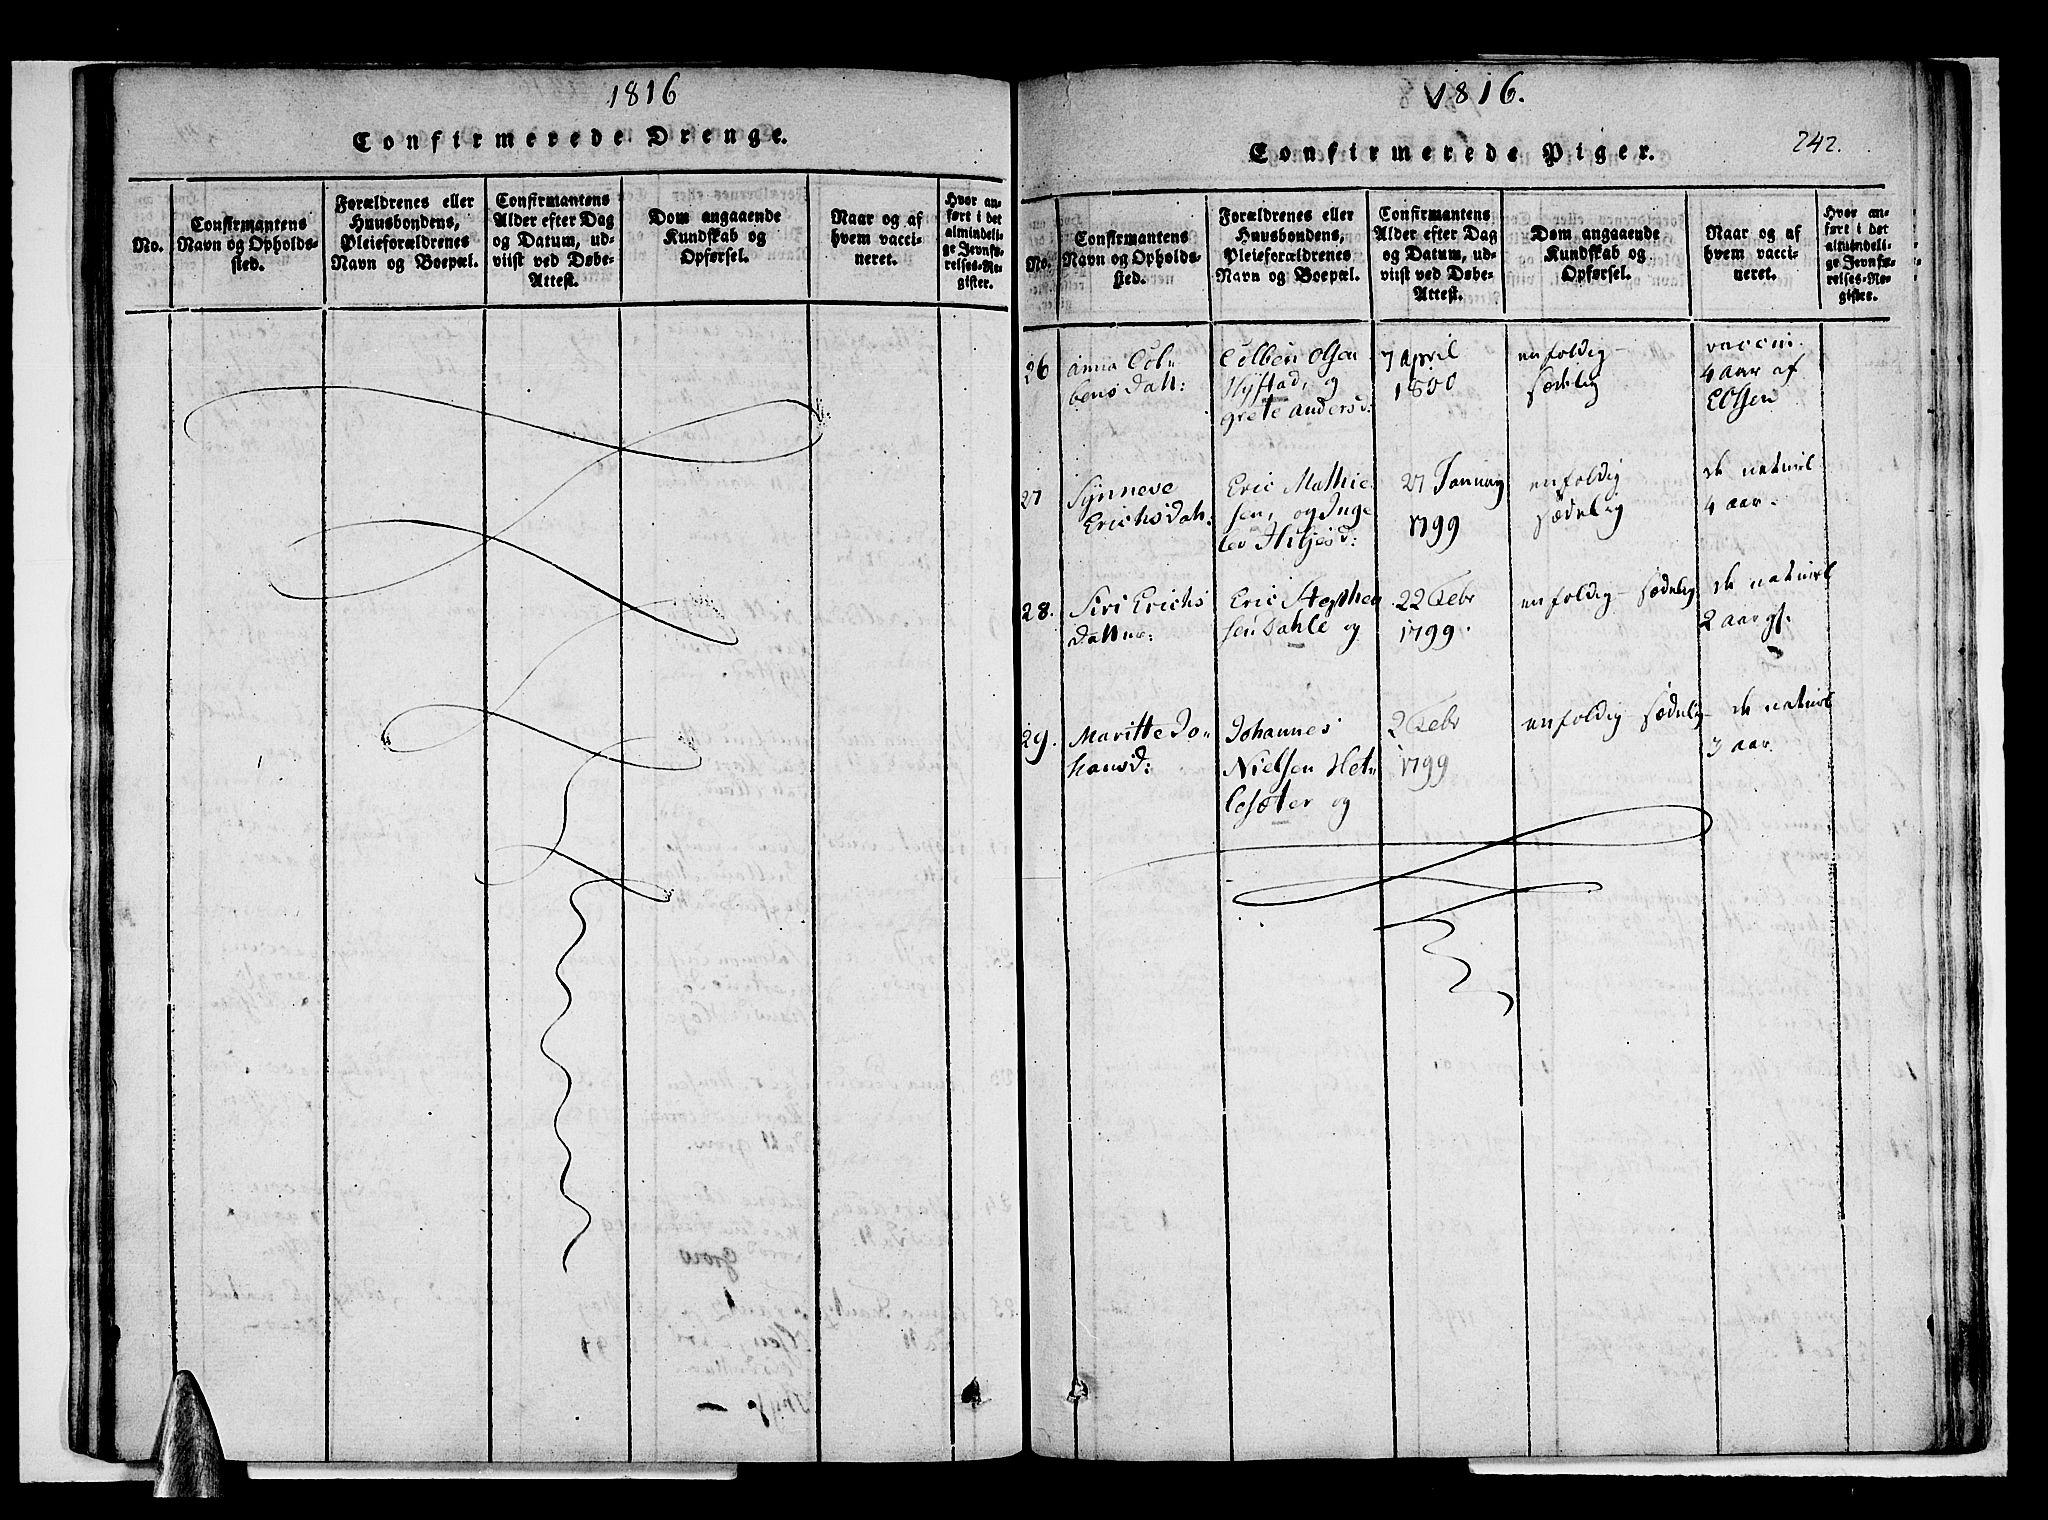 1816
Confirmerede Drenge.
No.
Confirmantens
Navn og Opholds-
sted.
Forældrenes eller
Huusbondens,
Pleieforældrenes
Navn og Boepæl.
Confirmantens
Alder efter Dag
og Datum, ud-
viist ved Døbe-
Attest.
Dom angaaende
Kundskab og
Opførsel.
Naar og af
hvem vacci-
neret.
Hvor an-
ført i det
almindeli-
ge Jevnfø-
relses-Re-
gister.
1816.
242.
Confirmerede Piger.
No.
Confirmantens
Navn og Opholds-
sted.
Forældrenes eller
Huusbondens,
Pleieforældrenes
Navn og Boepæl.
Confirmantens
Alder efter Dag
og Datum, ud-
viist ved Døbe-
Attest.
Dom angaaende
Kundskab og
Opførsel.
Naar og af
hvem vacci-
neret.
Hvor an-
ført i det
almindeli-
ge Jevnfø-
relses-Re-
gister.
26
Anna Col-
bens Datt:
Colben Olsen
og
Grete Andersd:
7 April
1800
enfoldig
sædelig
vaccin.
4 Aar af
27
Synneve
Erichsdatt:
Eric Mathie
sen, og Inge
27 January
1799
enfoldig
sædelig
de naturl
4 aar.
28.
Siri Erichs
datter:
Eric Stephen
sen Dahle og
22 Febr
1799.
enfoldig - sædelig
de naturl
2 aar
29.
Maritte Jo-
hansd:
Johannes
Nielsen Het-
lesæter og
2 Febr
1799
enfoldig sædelig
de naturl
3 aar